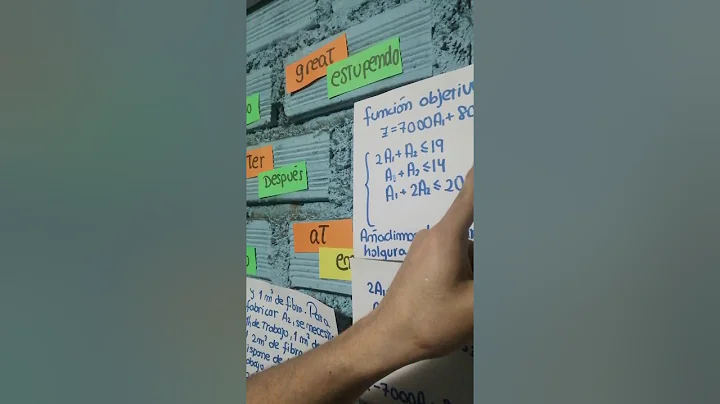 great
estupendo
Ter
Después
aT
función objetivo
Z=7000A₁+80
2A₁+A₂≤19
A₁+A₂≤14
A₁+2A₂≤20
Añadimos
holgura
y 1 m³ de fibro. Para
fabricar A₂, se neces
de Trabajo, 1 m³ de
2m³ de fibro
ispone de
bajo
2A₁
-7000A₁